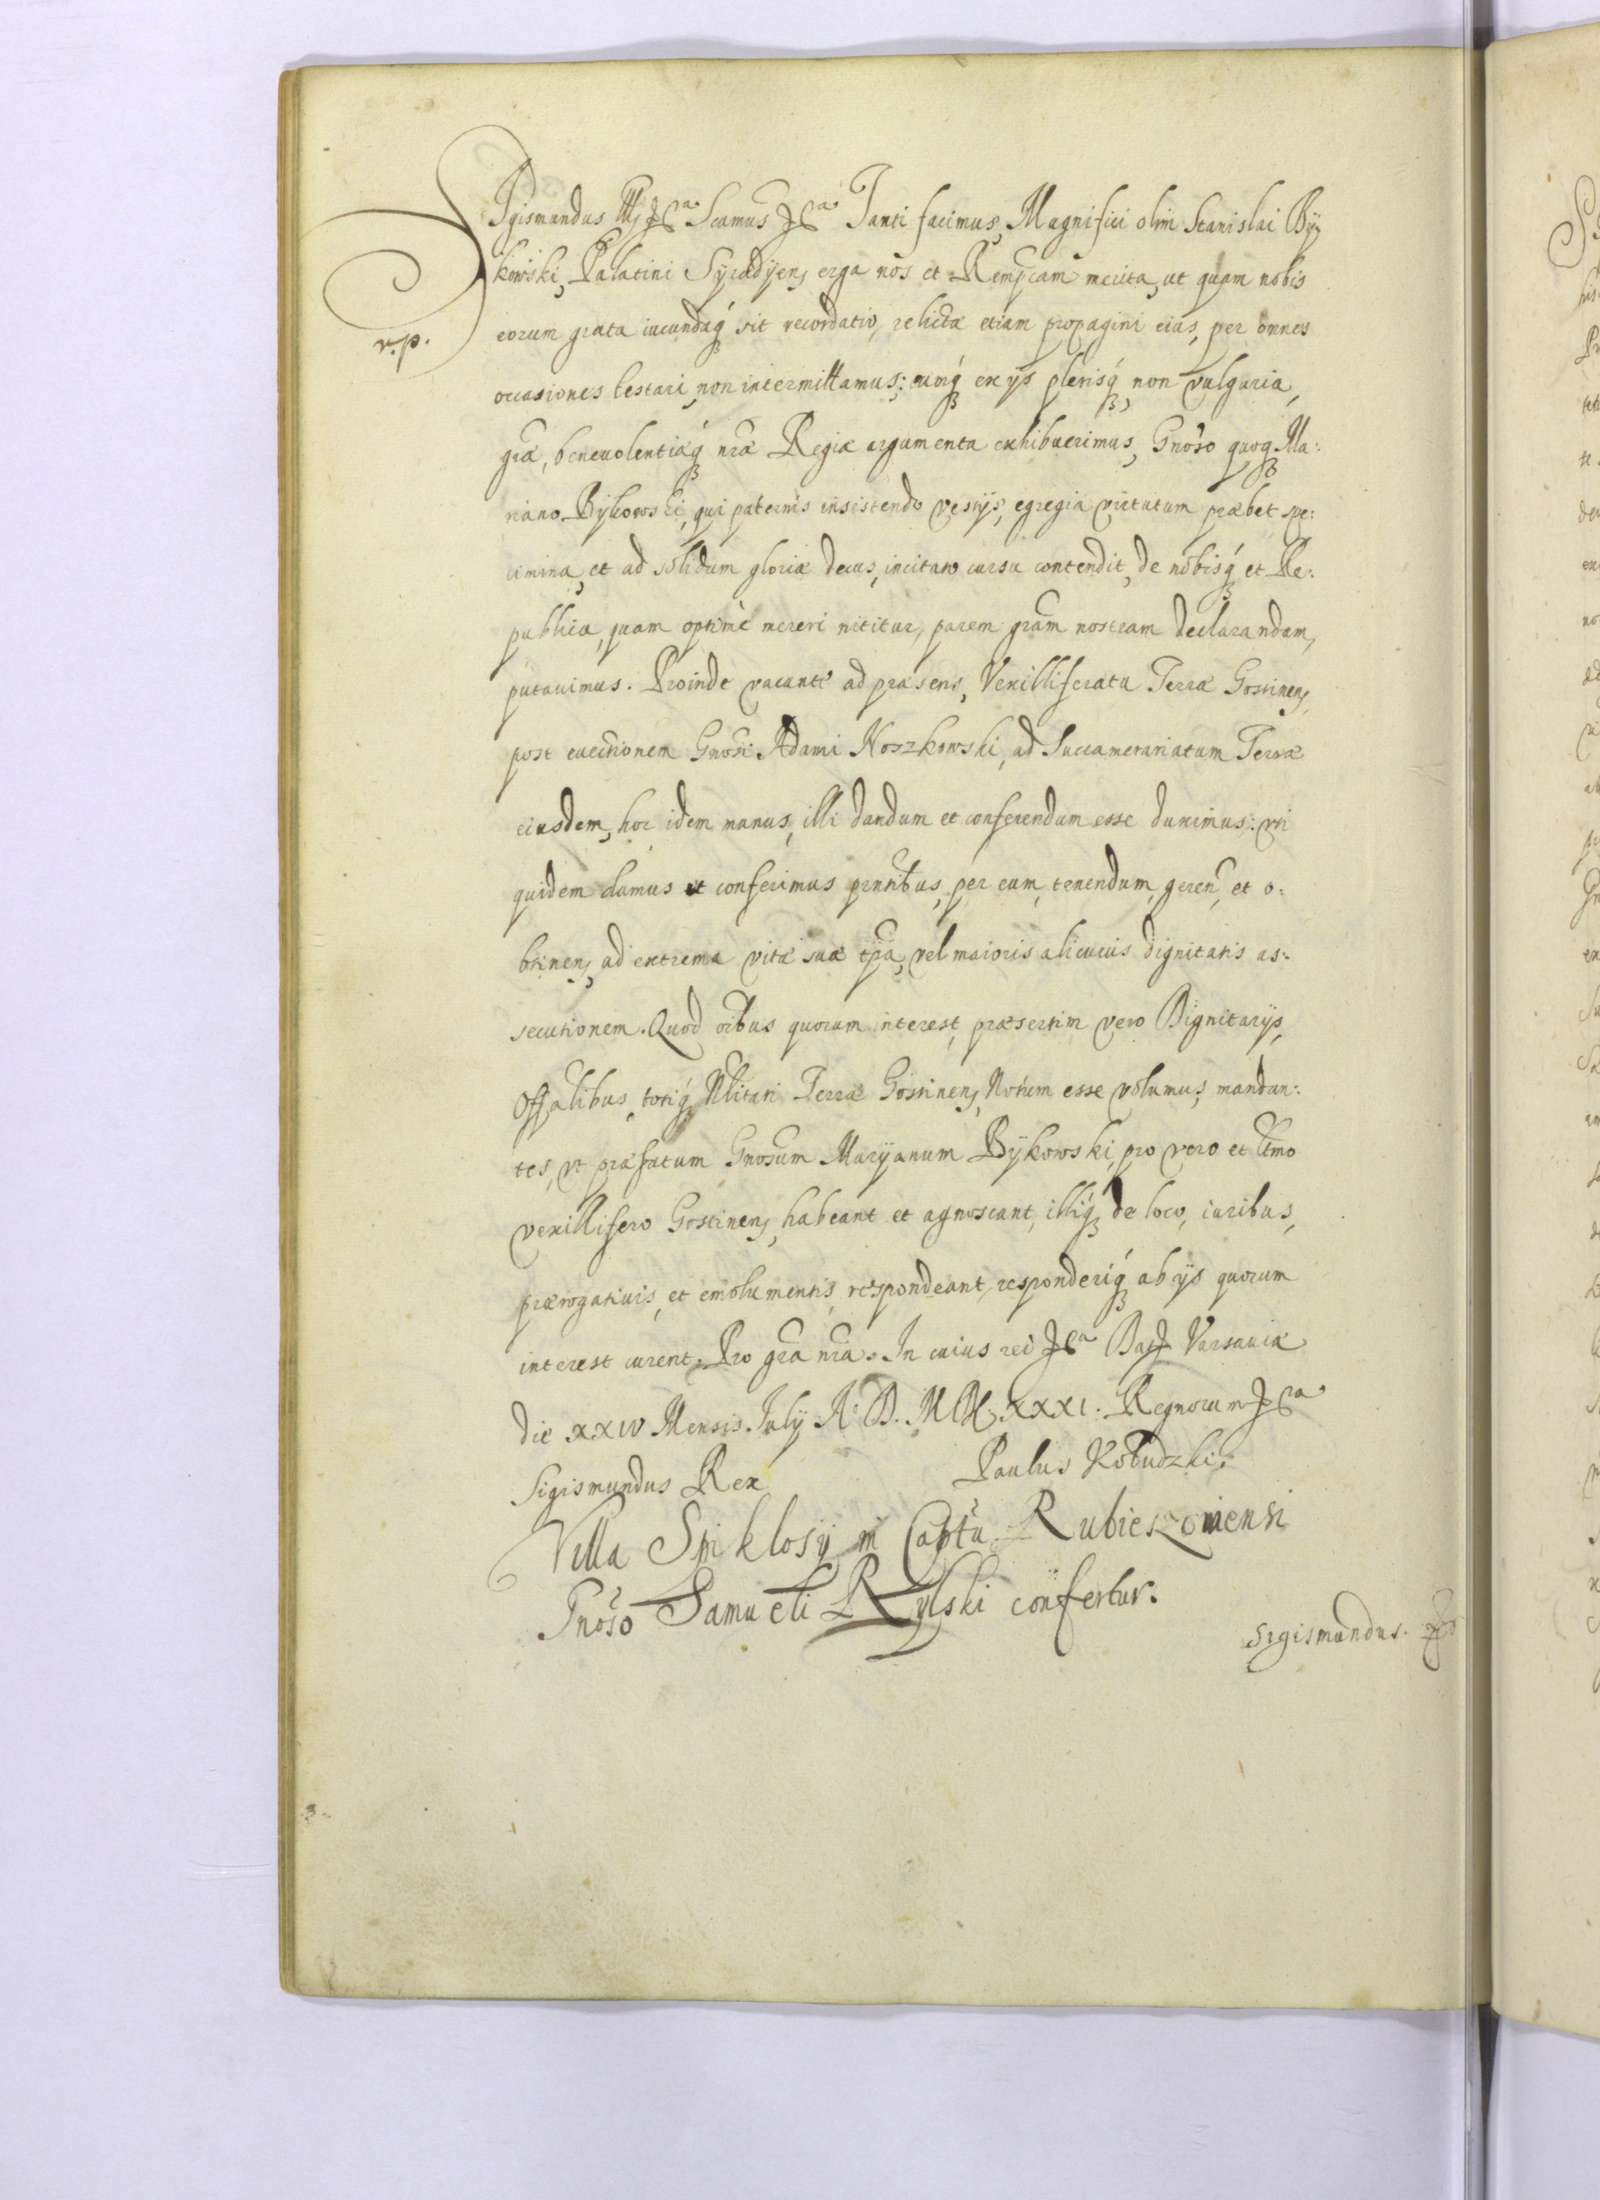 Sigismundus III, &cª Scamus &cª Tanti facimus, Magnifici olim Stanislai By:
kowski, Palatini Syradyen, erga nōs et Rempcam merita, ut quam nobis
r. p.
eorum grata iucundaq́ sit recordatio, relictæ etiam propagini eius, per omnes
occasiones testari, non intermittamus; cumq́ ex ijs plerisq́ non vulgaria,
gr̃æ, beneuolentiæq́ nr̃æ Regiæ argumenta exhibuerimus, Gnoso quoq Ma:
riano Bykowski, qui paternis insistendo vestijs, egregia virtutum præbet spe:
cimina, et ad solidum gloriæ decus, incitato cursu contendit, de nobisq́ et Re:
publica, quam optimè mereri nititur, parem gr̃am nostram declarandam,
putauimus. Proinde vacanti ad præsens, Vexilliferatu Terræ Gostinen,
post euectionem Gnosi Adami Noszkowski, ad Succamerariatum Terræ
eiusdem, hoc idem manus, illi dandum et conferendum esse duximus: vti
quidem damus et conferimus pr̃ntibus, per eum, tenendum, geren, et o:
btinen, ad extrema vitæ suæ tp̃a, vel maioris alicuius dignitatis as:
secutionem. Quod oĩbus quorum interest, præsertim vero Dignitarijs,
Offalibus, totiq́ Militari Terræ Gostinen, Notum esse volumus, mandan:
tes, vt præfatum Gnosum Maryanum Bykowski, pro vero et Ltmo
vexillifero Gostinen, habeant et agnoscant, illiq́ de loco, iuribus,
prærogatiuis, et emolumentis, respondeant, responderiq́ ab ijs quorum
interest curent. Pro gr̃a nr̃a. In cuius rei &cª Dat Varsauiæ
die XXIV Mensis July Aº D. MDC.XXXI. Regnorum &cª
Sigismundus Rex Paulus Kołudzki.
Villa Spiklosy in Captũ Rubieszouiensi
Gnoso Samueli Rylski confertur.
Sigismundus.